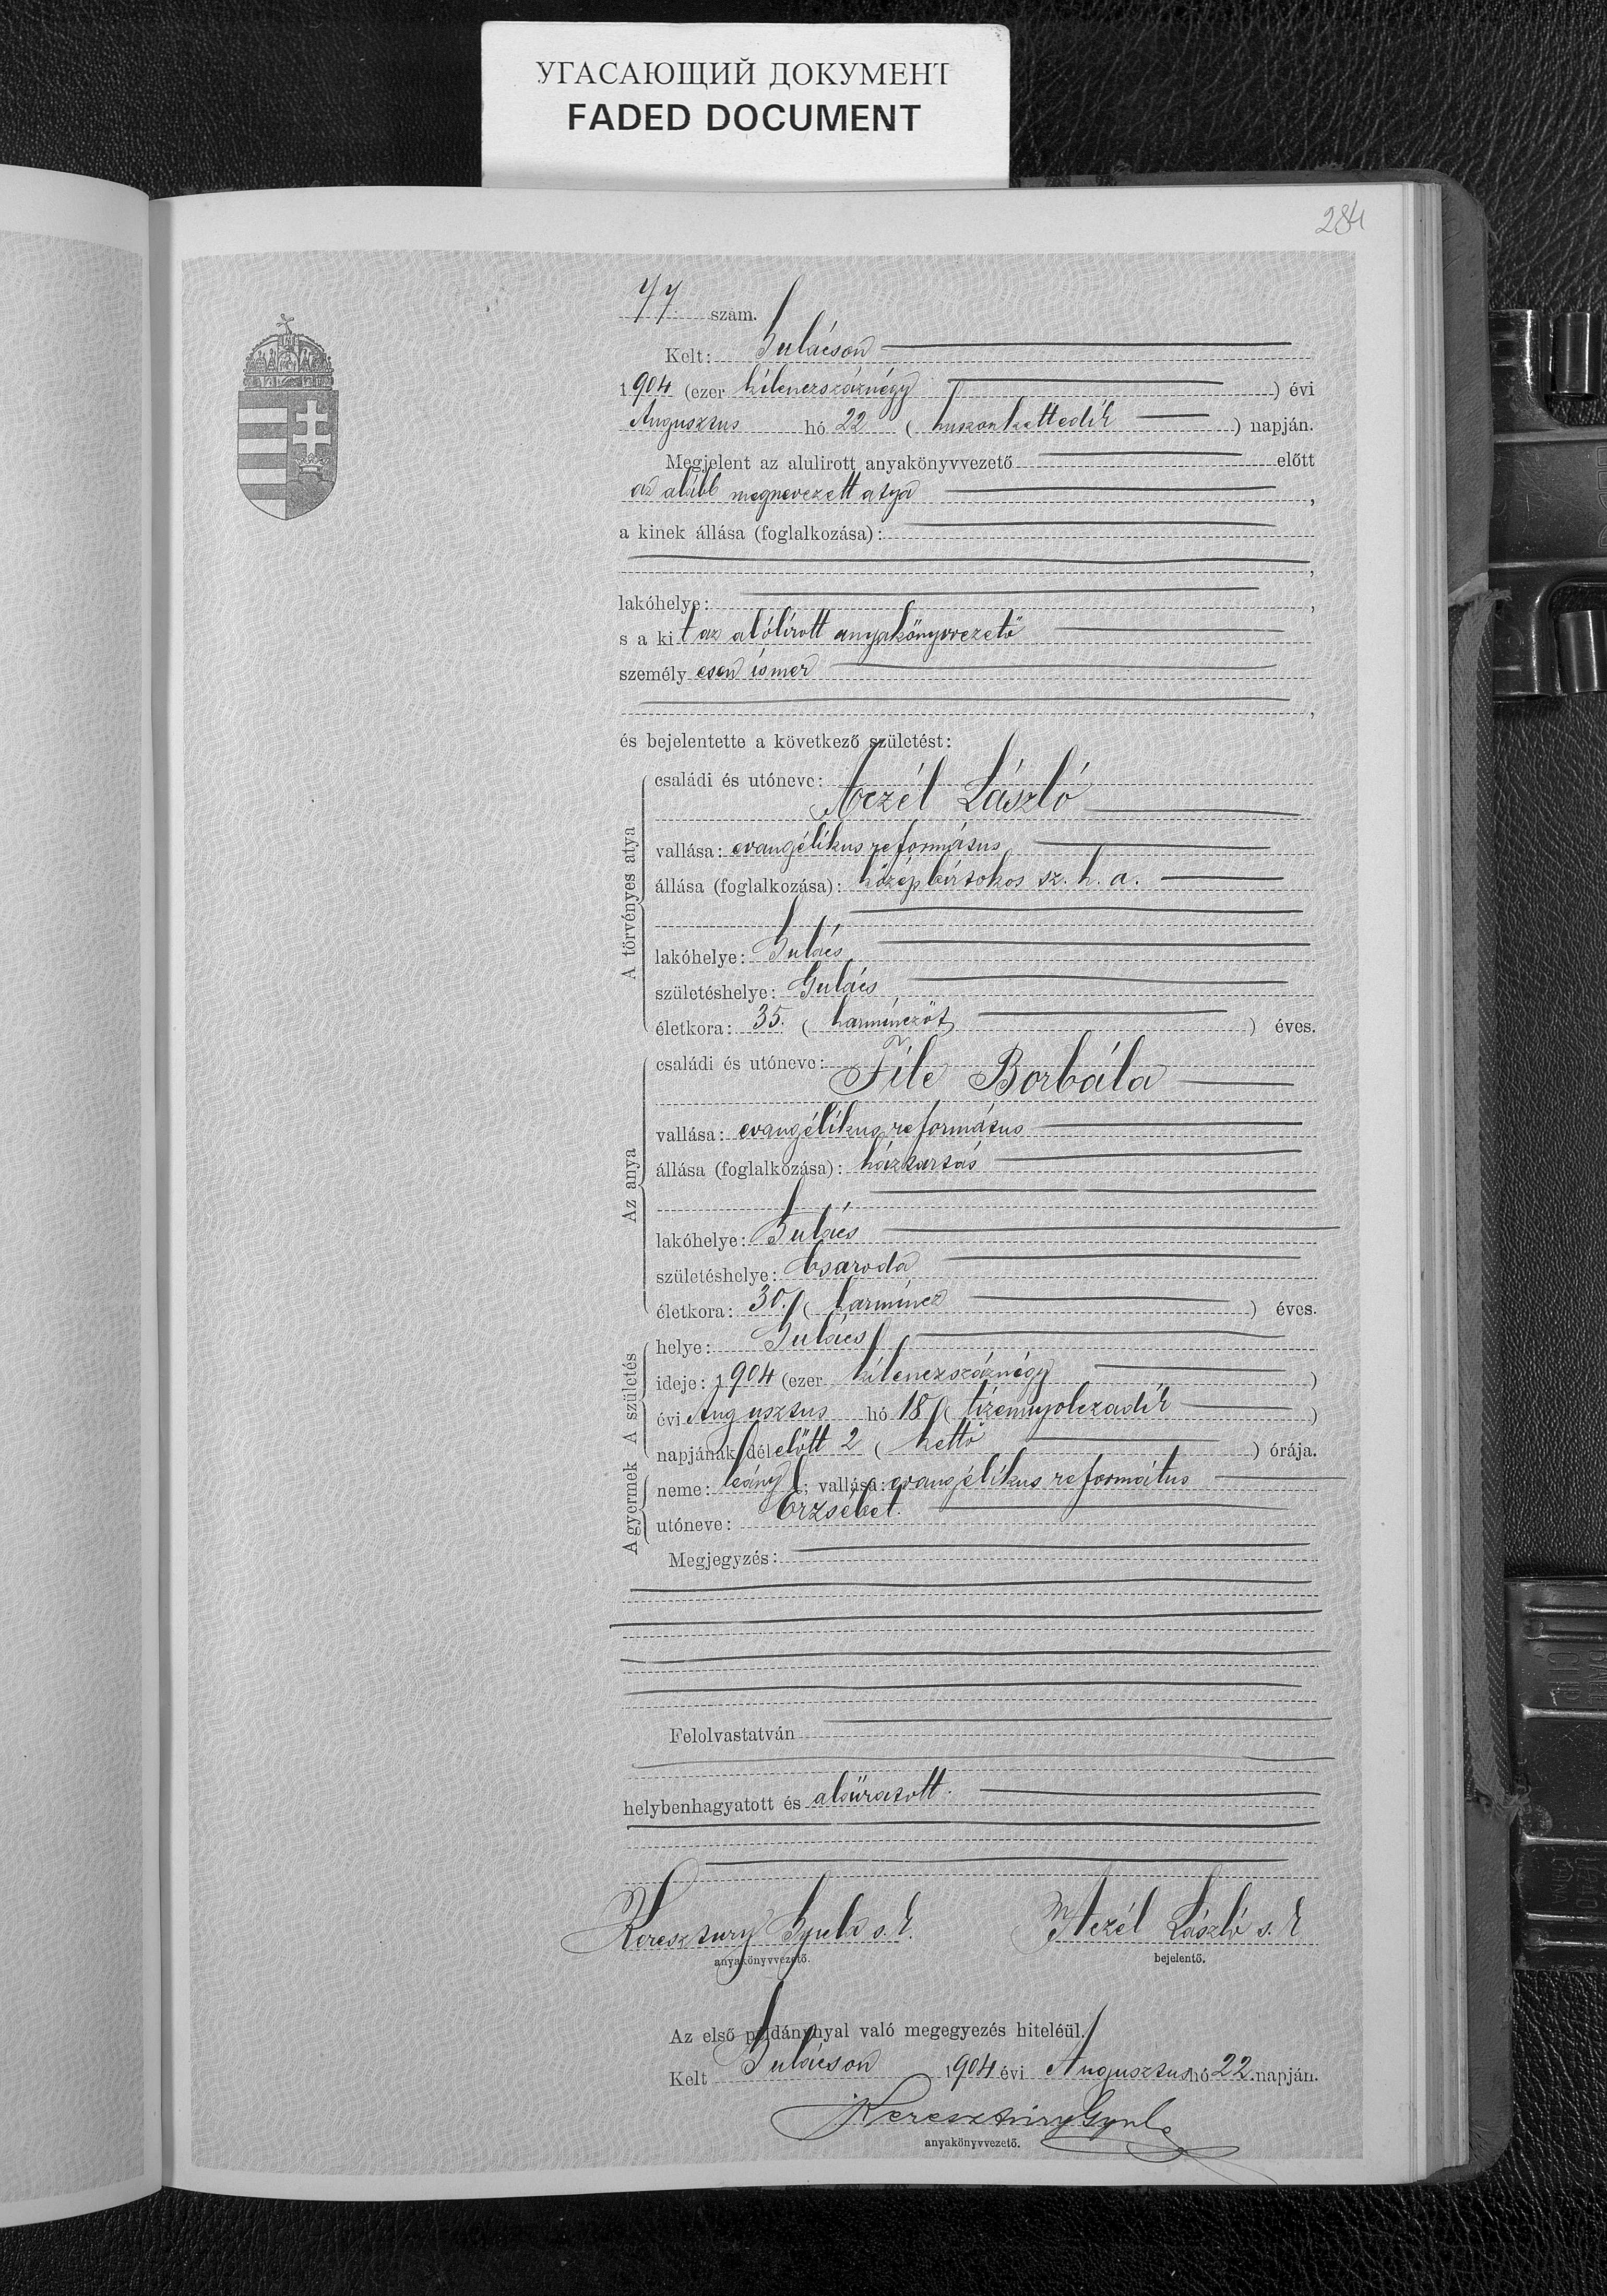 УГАСАЮЩИЙ ДОКУМЕНТ
FADED DOCUMENT
284
77 szám.
Kelt: Gulácson
1904 (ezer kilenczszáznégy ) évi
Augusztus hó 22 ( huszonkettedik ) napján.
Megjelent az alulirott anyakönyvvezető előtt
az alább megnevezett atya ,
a kinek állása (foglalkozása):
,
lakóhelye: ,
s a kit az alólirott anyakönyvvezető
személyesen ismer
,
és bejelentette a következő születést:
A törvényes atya
családi és utóneve:
Aczél László
vallása: evangélikus református
állása (foglalkozása): középbirtokos sz. k. a.
lakóhelye: Gulács
születéshelye: Gulács
életkora: 35. ( harminczöt ) éves.
Az anya
családi és utóneve:
File Borbála
vallása: evangélikus református
állása (foglalkozása): háztartás
lakóhelye: Gulács
születéshelye: Csaroda
életkora: 30. ( harmincz ) éves.
A születés
helye: Gulács
ideje: 1904 (ezer kilenczszáznégy )
évi Augusztus hó 18 ( tizennyolczadik )
napjának délelőtt 2 ( kettő ) órája.
A gyermek
neme: leány ; vallása: evangélikus református
utóneve: Erzsébet.
Megjegyzés:
Felolvastatván
helybenhagyatott és aláiratott.
Keresztury Gyula s. k. Aczél László s. k.
anyakönyvvezető. bejelentő.
Az első példánynyal való megegyezés hiteléül.
Kelt Gulácson 1904 évi Augusztus hó 22. napján.
Keresztury Gyula
anyakönyvvezető.